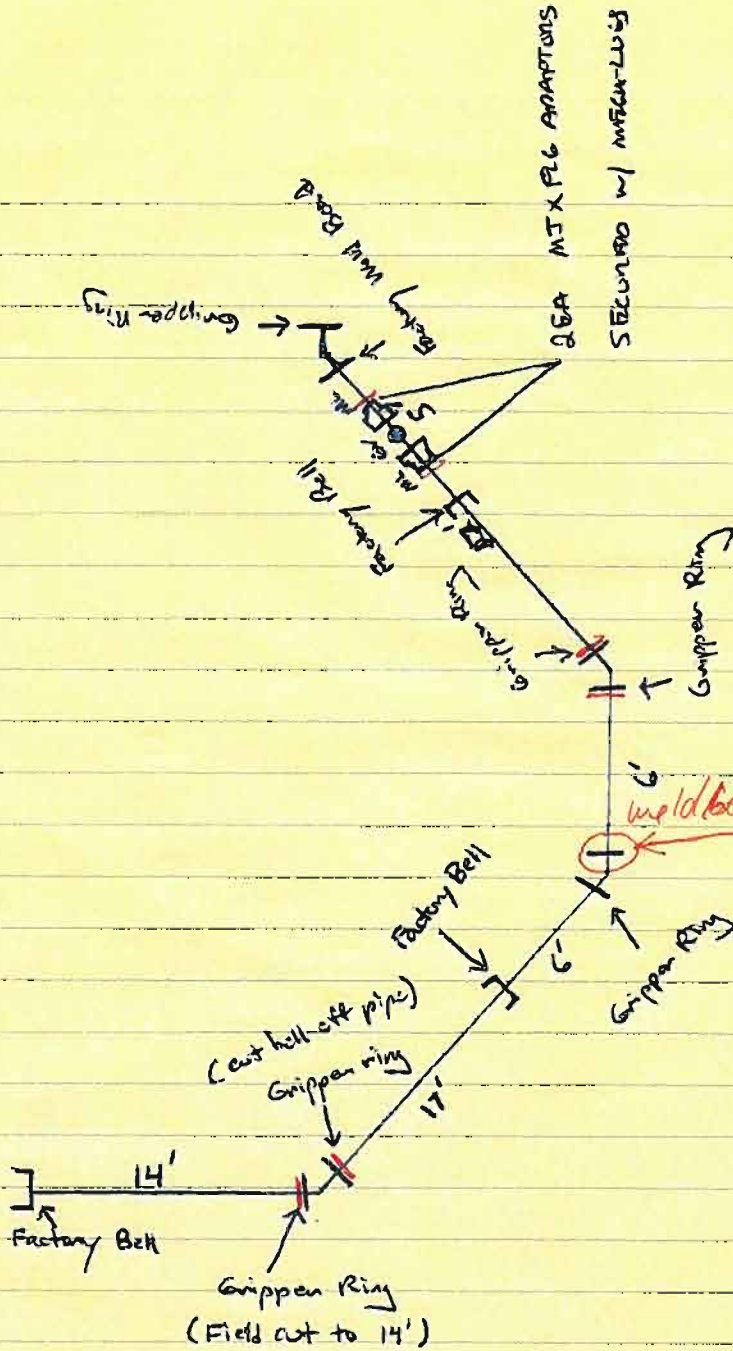 2EA MJ X FLG ADAPTORS
SECURED W/ MEGA-LUGS
Factory Weld Bead
Gripper Ring
ML
5'
GV
ML
Factory Bell
Gripper Ring
Gripper Ring
6'
Factory Bell
6'
Gripper Ring
(cut bell off pipe)
Gripper ring
17'
14'
Factory Bell
Gripper Ring
(Field cut to 14')